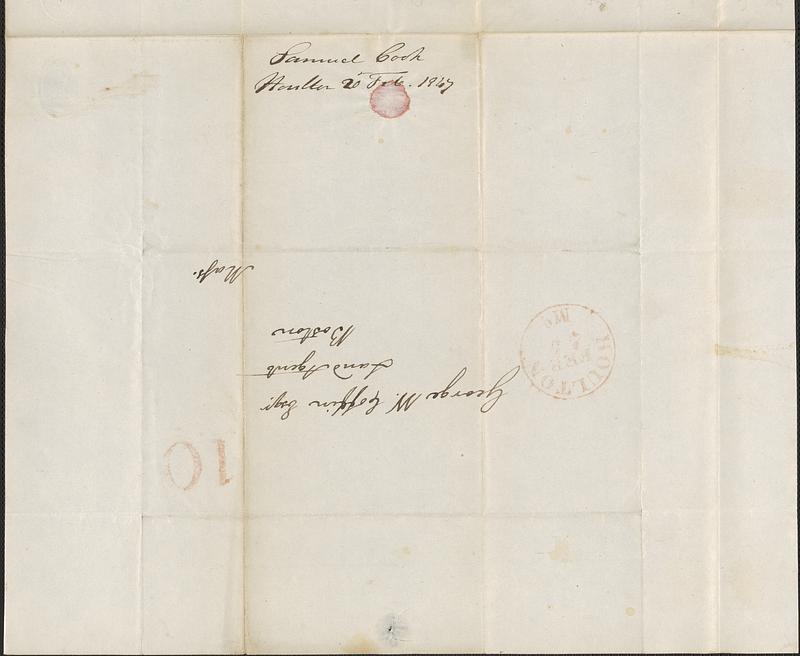 Samuel Cook
Houlton 2 Feb. 1847
George W. Coffin Esqr.
Land Agent
Boston
Mass.
HOULTON
FEB
Me
10